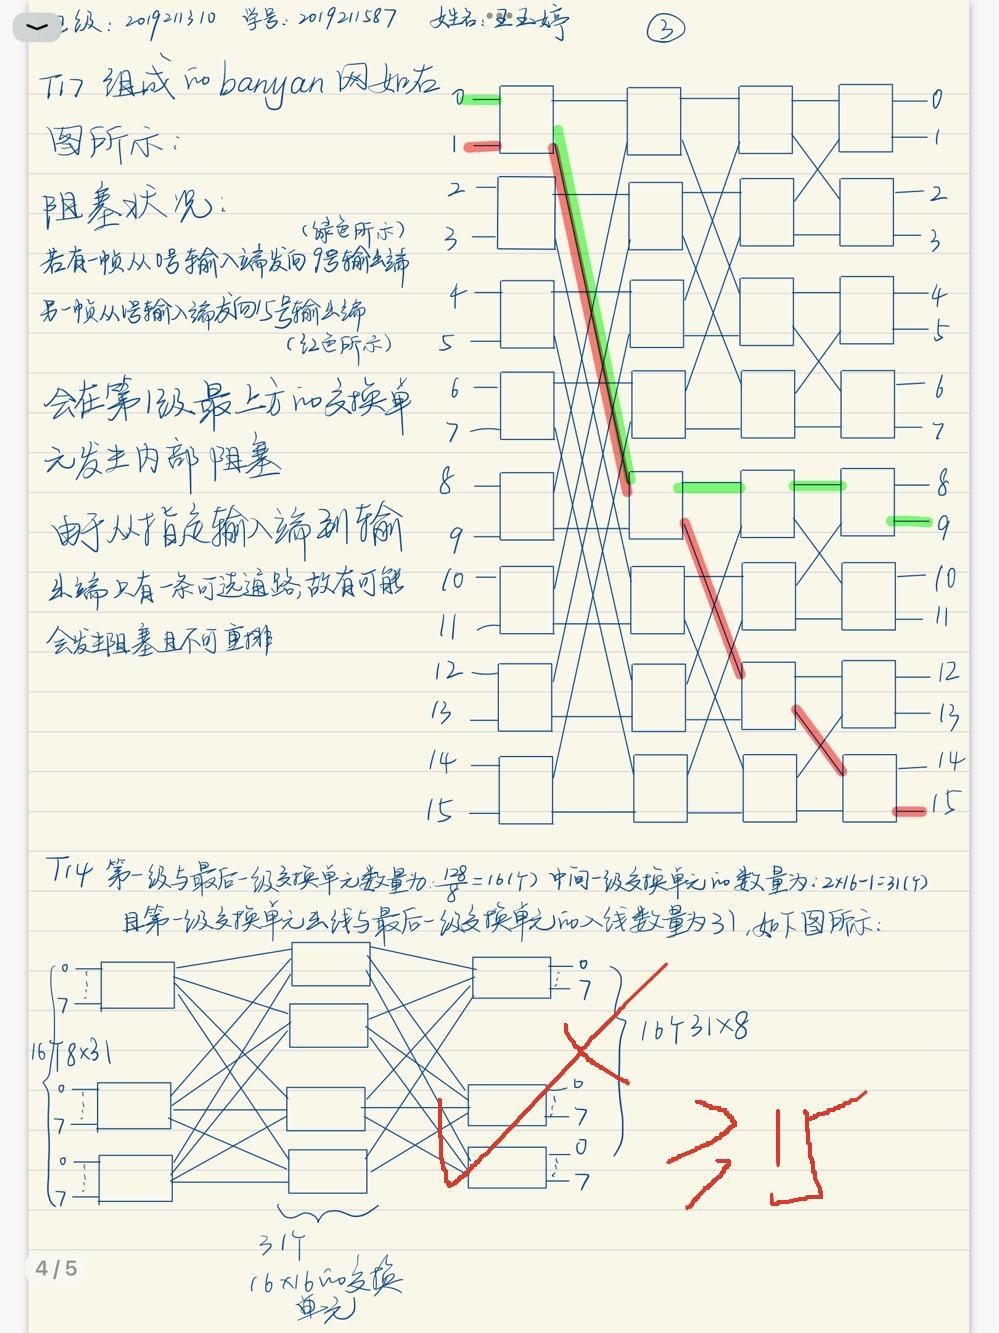 级：2019211310 学号：2019211587 姓名：王玉婷 ③
T17 组成的banyan网如左
图所示：
阻塞状况：
（绿色所示）
若有一帧从0号输入端发向9号输出端
另一帧从1号输入端发向15号输出端
（红色所示）
会在第1级最上方的交换单
元发生内部阻塞
由于从指定输入端到输
出端只有一条可选通路，故有可能
会发生阻塞且不可重排
0
1
2
3
4
5
6
7
8
9
10
11
12
13
14
15
0
1
2
3
4
5
6
7
8
9
10
11
12
13
14
15
T14 第一级与最后一级交换单元数量为：128/8=16（个） 中间一级交换单元的数量为：2×16-1=31（个）
且第一级交换单元出线与最后一级交换单元的入线数量为31，如下图所示：
0
7
0
7
0
7
16个8×31
0
7
0
7
0
7
16个31×8
31个
16×16的交换
单元
≥15
4/5